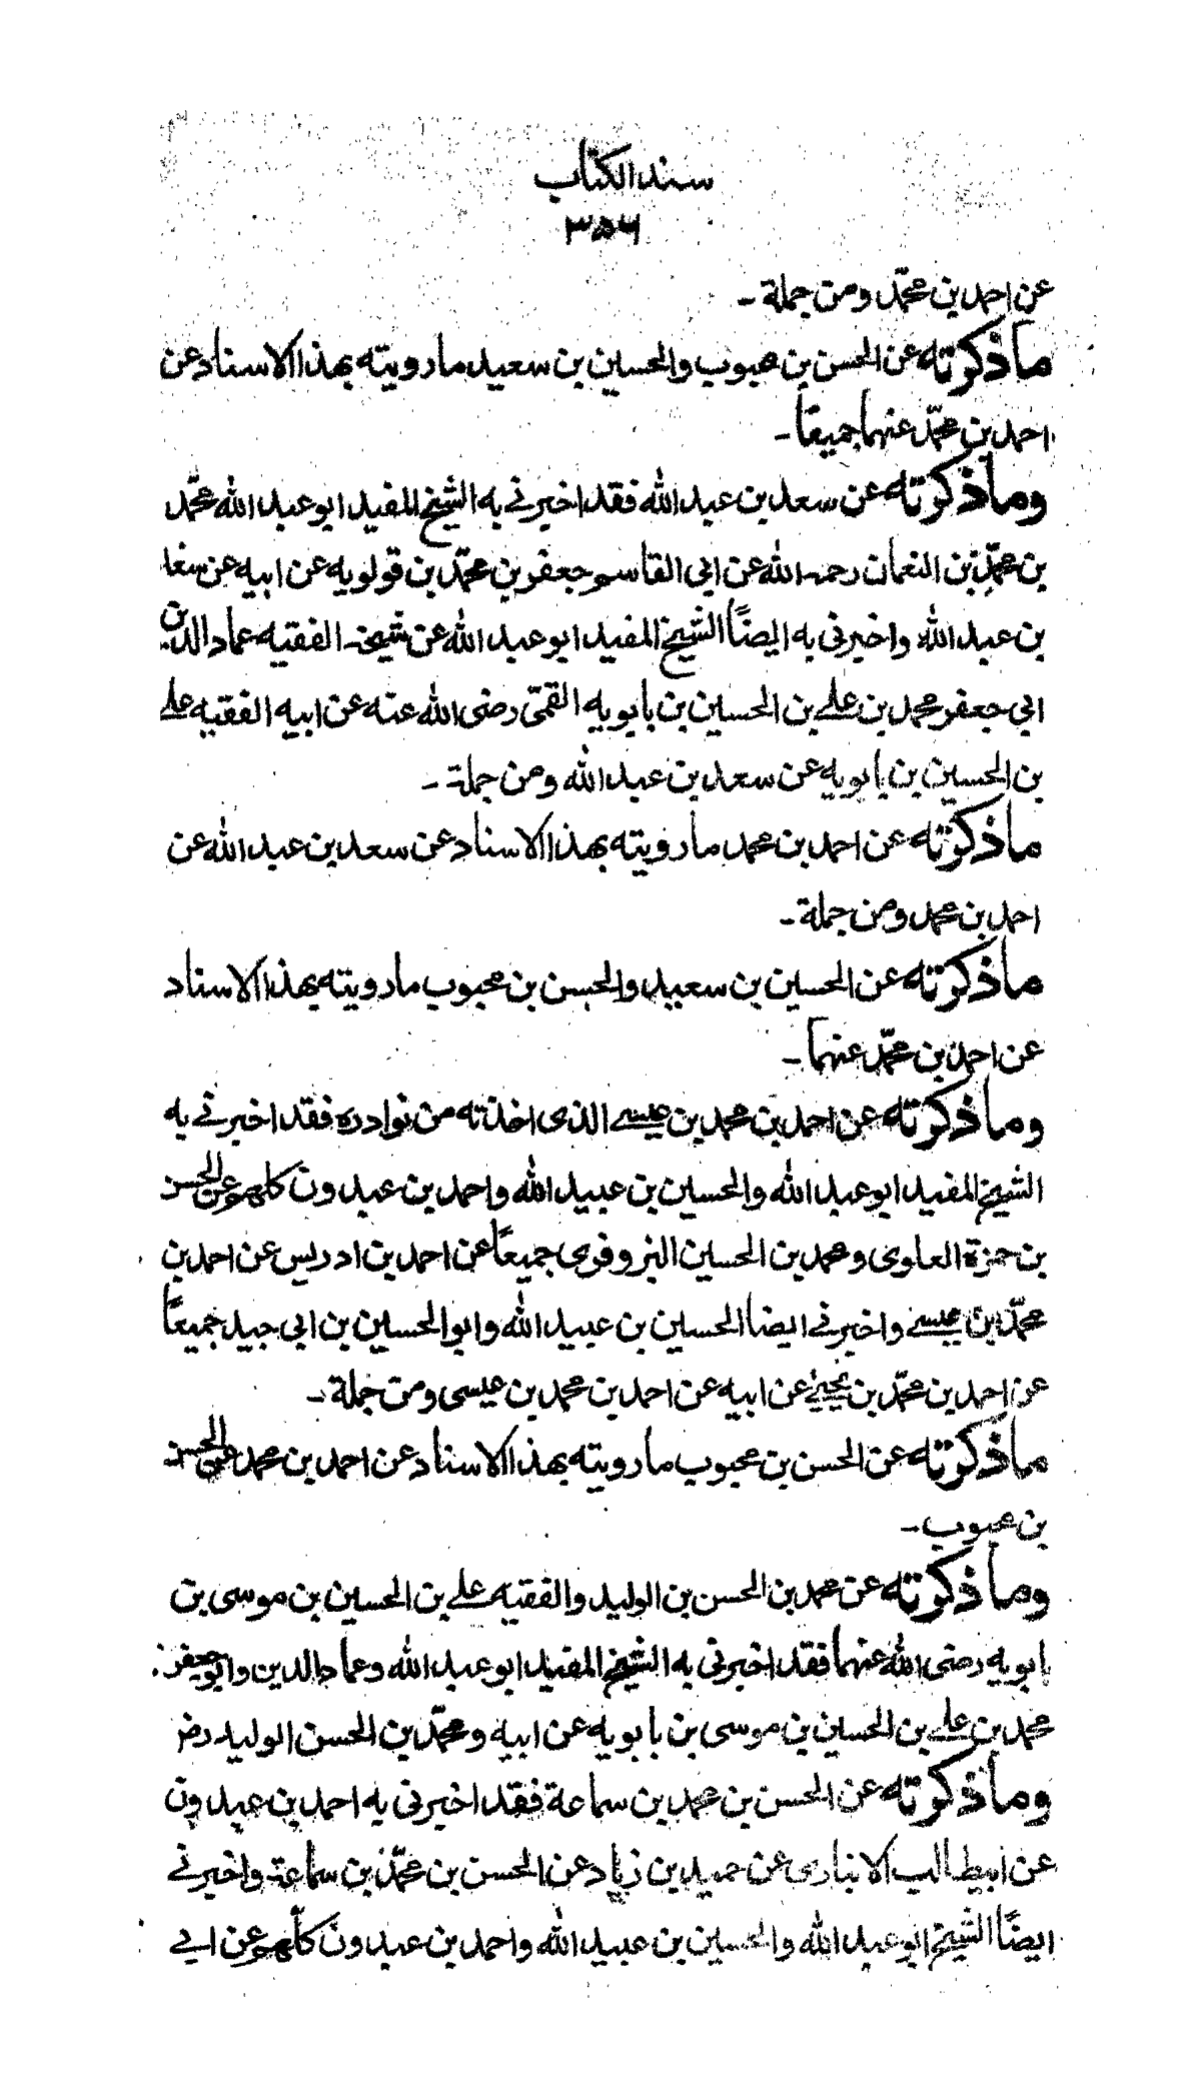 سند الكتاب
٣٥٦
عن احمد بن محمّد ومن جملة ـ
ماذكرته عن الحسن بن محبوب والحسين بن سعيد مارويته بهذا الاسناد عن
احمد بن محمّد عنهما جميعًا ـ
وماذكرته عن سعد بن عبد الله فقد اخبرنى به الشيخ المفيد ابو عبد الله محمّد
بن محمّد بن النعمان رحمه الله عن ابى القاسم جعفر بن محمّد بن قولويه عن ابيه عن سعد
بن عبد الله واخبرنى به ايضًا الشيخ المفيد ابو عبد الله عن شيخه الفقيه عماد الدين
ابى جعفر محمد بن على بن الحسين بن بابويه القمّى رضى الله عنه عن ابيه الفقيه على
بن الحسين بن بابويه عن سعد بن عبد الله ومن جملة ـ
ماذكرته عن احمد بن محمد مارويته بهذا الاسناد عن سعد بن عبد الله عن
احمد بن محمد ومن جملة ـ
ماذكرته عن الحسين بن سعيد والحسن بن محبوب مارويته بهذا الاسناد
عن احمد بن محمّد عنهما ـ
وماذكرته عن احمد بن محمد بن عيسى الذى اخذته من نوادره فقد اخبرنى به
الشيخ المفيد ابو عبد الله والحسين بن عبيد الله واحمد بن عبدون كلهم عن الحسن
بن حمزة العلوى ومحمد بن الحسين البزوفرى جميعًا عن احمد بن ادريس عن احمد بن
محمّد بن عيسى واخبرنى ايضا الحسين بن عبيد الله وابو الحسين بن ابى جيد جميعًا
عن احمد بن محمّد بن يحيى عن ابيه عن احمد بن محمد بن عيسى ومن جملة ـ
ماذكرته عن الحسن بن محبوب مارويته بهذا الاسناد عن احمد بن محمد عن الحسن
بن محبوب ـ
وماذكرته عن محمد بن الحسن بن الوليد والفقيه على بن الحسين بن موسى بن
بابويه رضى الله عنهما فقد اخبرنى به الشيخ المفيد ابو عبد الله وعماد الدين وابو جعفر
محمد بن على بن الحسين بن موسى بن بابويه عن ابيه ومحمّد بن الحسن الوليد رض
وماذكرته عن الحسن بن محمد بن سماعة فقد اخبرنى به احمد بن عبدون
عن ابيطالب الانبارى عن حميد بن زياد عن الحسن بن محمّد بن سماعة واخبرنى
ايضًا الشيخ ابو عبد الله والحسين بن عبيد الله واحمد بن عبدون كلّهم عن ابى